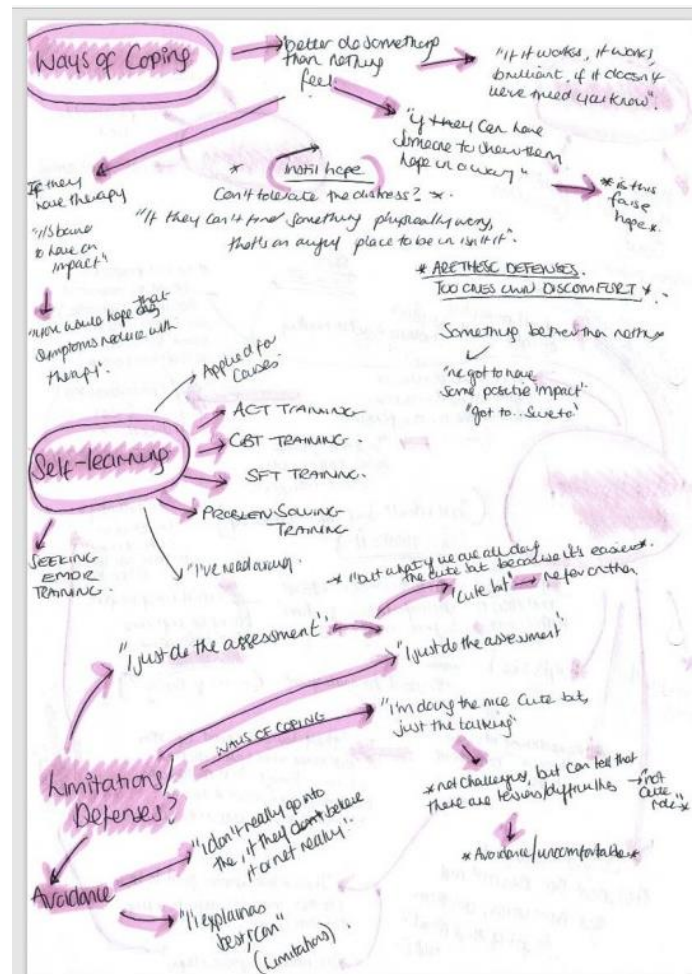 Ways of Coping
better do something
than nothing
feel.
"if it works, it works,
brilliant, if it doesn't
we've tried you know".
"if they can have
someone to show them
hope in a way"
* is this
false
hope *
* instil hope
Can't tolerate the distress? *
"If they can't find something physically wrong,
that's an awful place to be in isn't it".
If they
have therapy
"it's bound
to have an
impact"
"you would hope that
symptoms reduce with
therapy".
* ARE THESE DEFENSES.
TO ONES OWN DISCOMFORT *
Something better than nothing
got to have
some positive impact"
"got to...
Self-learning
Applied for
courses
ACT TRAINING
CBT TRAINING
SFT TRAINING.
PROBLEM SOLVING
TRAINING
"I've read
SEEKING
EMDR
TRAINING.
* "but what if we are all doing
the cute bit because it's easier *
"cute bit" refer on then
"I just do the assessment"
"I just do the assessment"
WAYS OF COPING
"I'm doing the nice cute bit,
just the talking"
* not challenging, but can tell that
there are tensions/difficulties
not
cute
* Avoidance/uncomfortable *
Limitations/
Defenses?
Avoidance
"I don't really go into
the, if they don't believe
it or not really".
"I explain as
best I can"
(limitations).